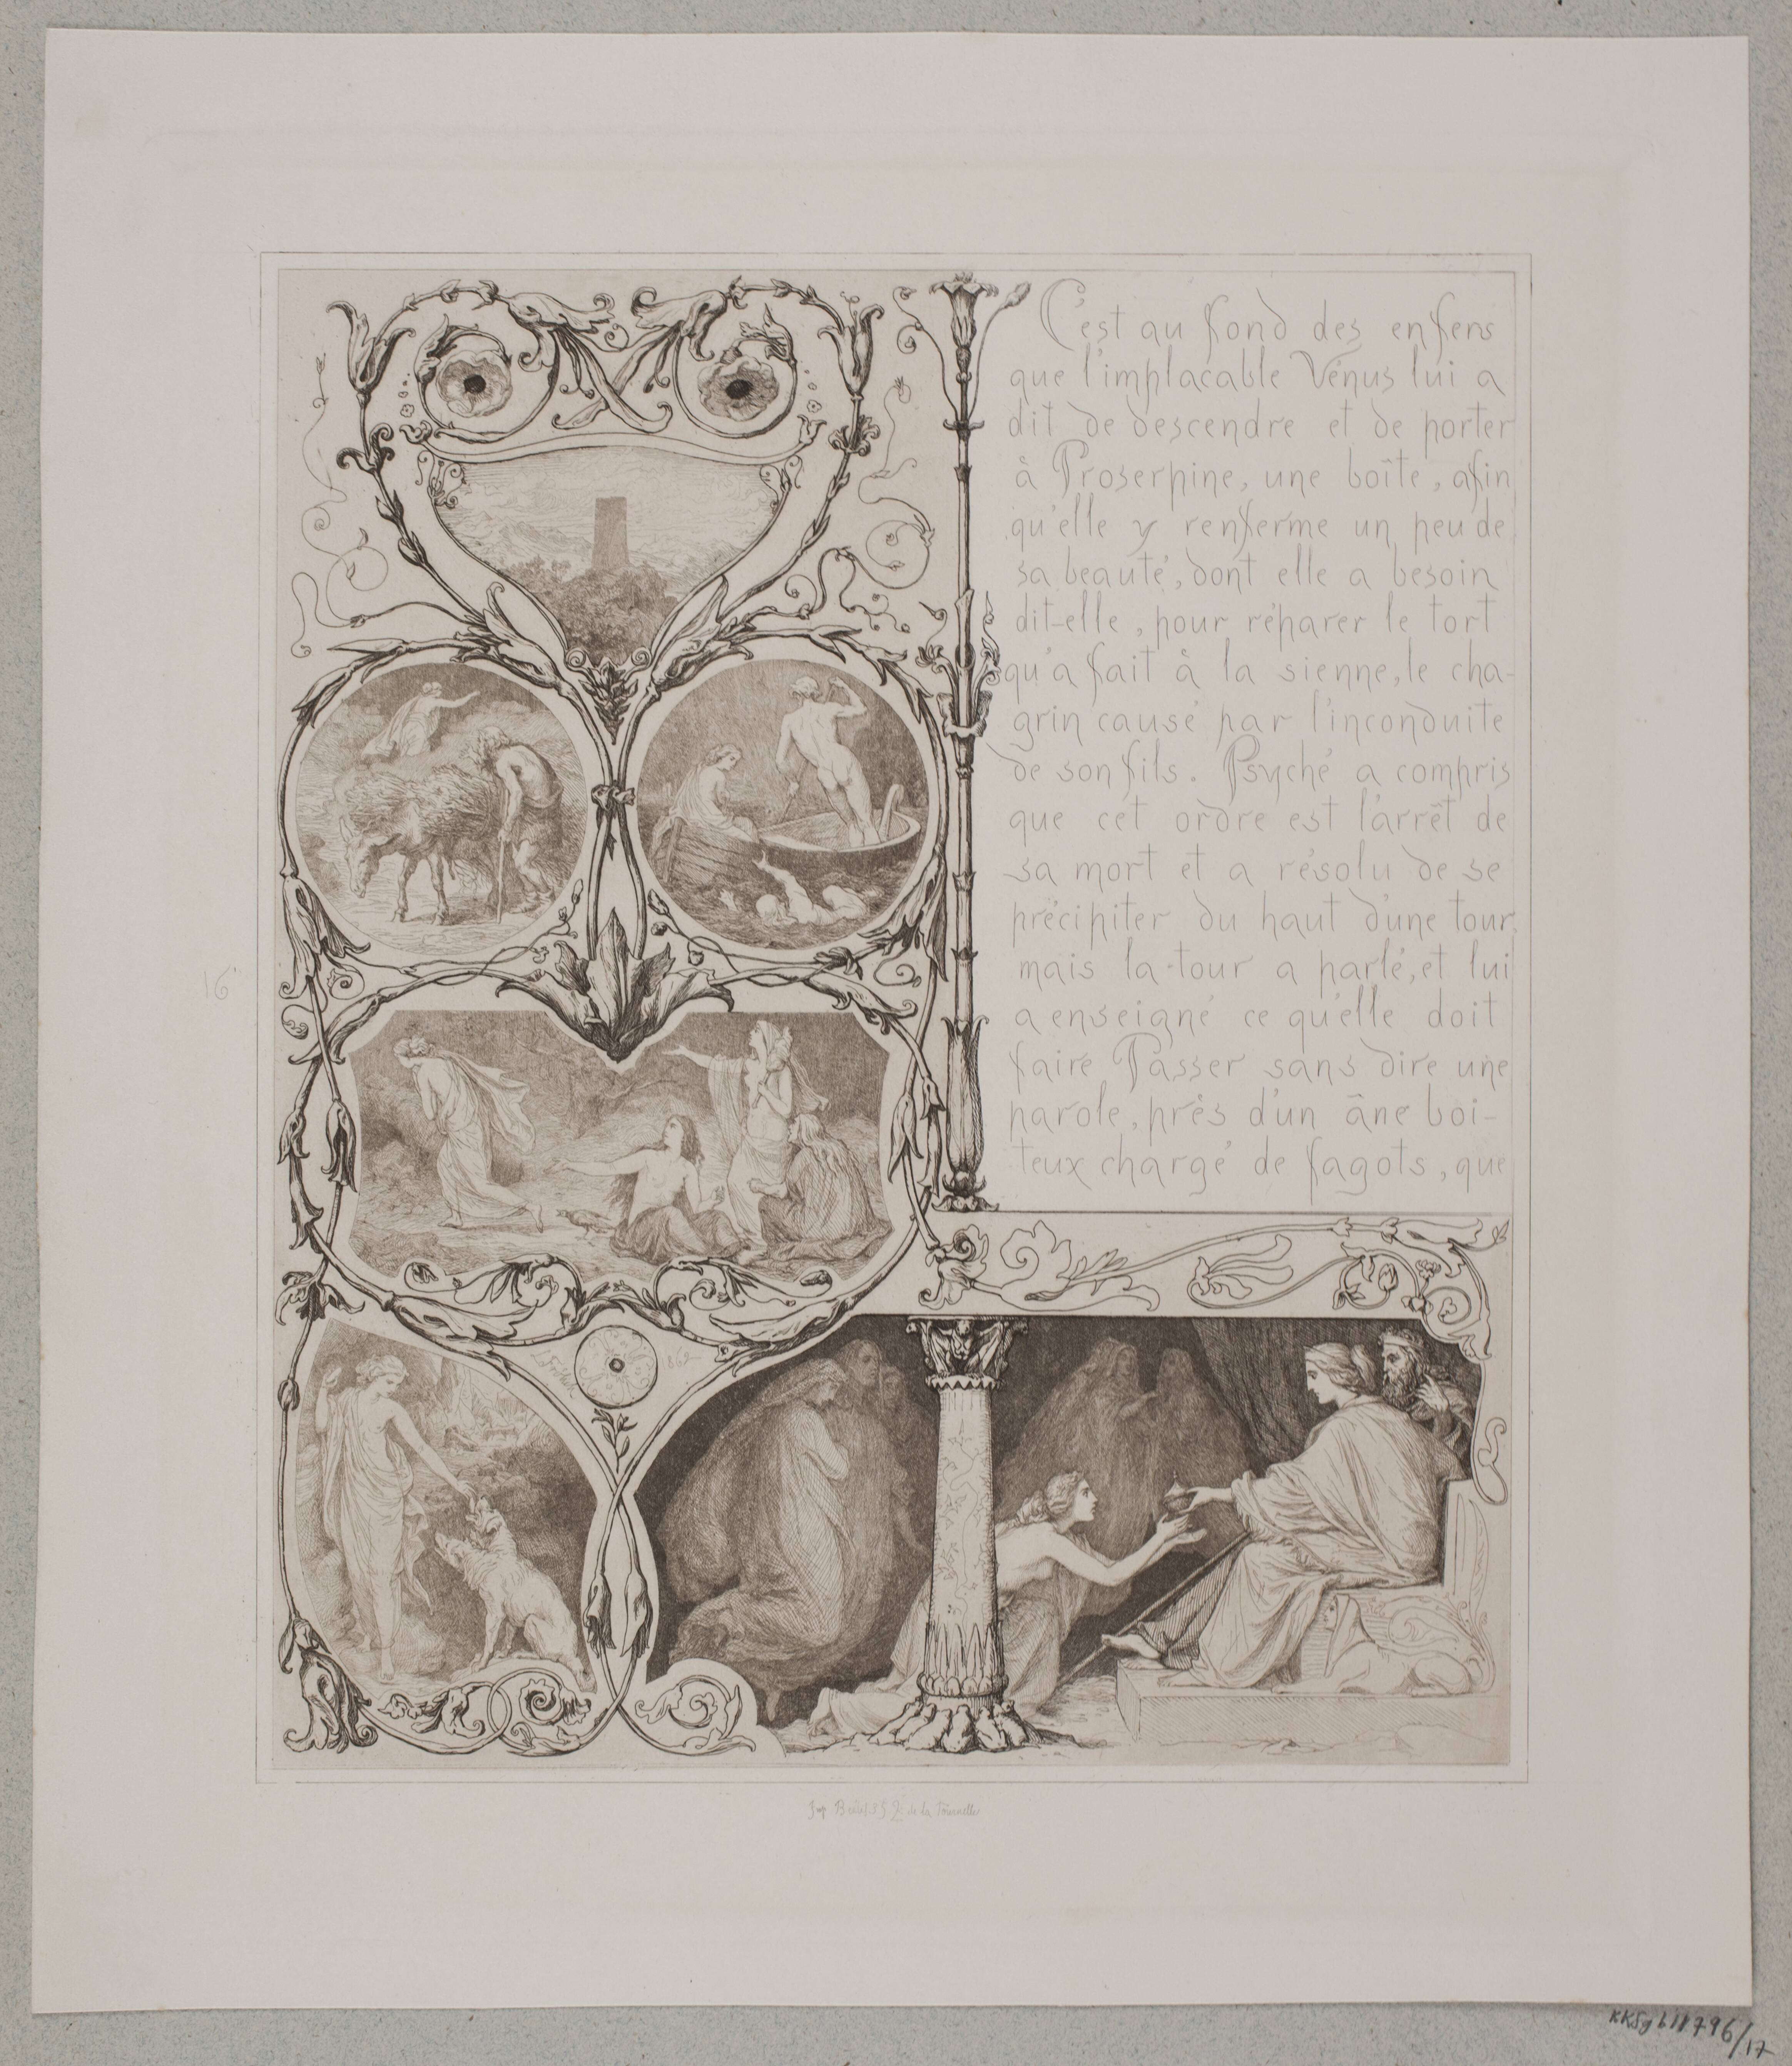 C'est au fond des enfers
que l'implacable Vénus lui a
dit de descendre et de porter
à Proserpine, une boîte, afin
qu'elle y renferme un peu de
sa beauté, dont elle a besoin
dit-elle, pour réparer le tort
qu'a fait à la sienne, le cha-
grin causé par l'inconduite
de son fils. Psyché a compris
que cet ordre est l'arrêt de
sa mort et a résolu de se
précipiter du haut d'une tour,
mais la tour a parlé, et lui
a enseigné ce qu'elle doit
faire Passer sans dire une
parole, près d'un âne boi-
teux chargé de fagots, que
16
1862
Imp. de la Tournelle
KKSgb11796/17